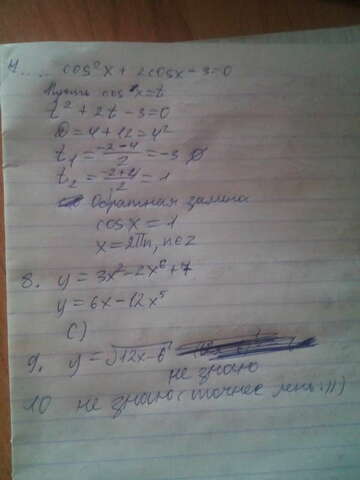 .... cos²x + 2cosx - 3 = 0
Пусть cos x = t
t² + 2t - 3 = 0
D = 4 + 12 = 4²
t₁ = (-2-4)/2 = -3 ∅
t₂ = (-2+4)/2 = 1
Обратная замена
cosx = 1
x = 2Пn, n∈Z
8. y = 3x² - 2x⁶ + 7
y = 6x - 12x⁵
C)
9. y = √12x-6
не знаю
10 не знаю (точнее лень :)))